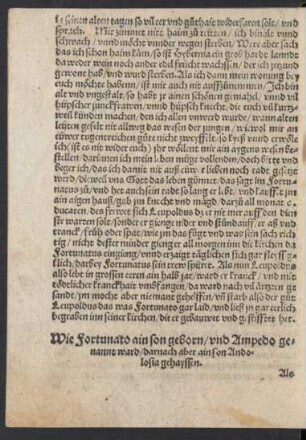 in seinen alten tagen so vil eer vnd güthait widerfaren solt / vnd
sprach. Mir zimmet nitt haim zů reitten / ich bin alt vnnd
schwach / vnnd möchte vnder wegen sterben / Were aber sach
das ich schon haim käm / so ist Hybernia ein grob herde lanndt
da weder wein noch ander edel frücht wachssen / der ich yetzund
gewont hab / vnd wurd sterben. Als ich dann mein wonung bey
euch möchte haben / ist mir auch nit auffzůnemen / Ich bin
alt vnd vngestalt / so habt jr ainen schönen gemahel / vnnd vil
hüpscher junckfrawen / vnnd hüpsch knecht / die euch vil kurtz
weil künden machen / den ich allen vnwerd wurde / wann alten
leüten gefelt nit allweg das wesen der jungen / wiewol mir an
ewer tugentreichen güte nicht zweyfflet /
ich / ist es nit wider euch / jhr wöllent mir ain aygens wesen be-
stellen / darinnen ich mein leben müge vollenden / doch bitt vnd
beger ich / das ich damit nit auß eüwrem leben noch radt gesetzt
werd / die weil vns Gott das leben günnet. das sagt im Fortu-
natus zů / vnd het auch sein radt so lang er lebt. vnd kaufft jm
ain aigen hauß / gab jm knecht vnd mägd / darzů all monat c.
ducaten. des frewet sich Leupoldus dz er nit mer auff den dien
ste warten solt / sonder er gieng nider vnd stůnd auff / er aß vnd
tranck / früh oder spat / wie jm das fügt vnd was sein sach rich
tig / nicht dester minder gienger all morgen inn die kirchen da
Fortunatus eingieng / vnnd erzaigt täglichen sich gar fleissig-
lich / darbey Fortunatus sein trew spüret. Als nun Leupoldt
also lebt in grossen eeren ain halb jar / ward er kranck / vnd mit
tödtlicher kranckhait vmbfangen / da ward nach vil ärtzten ge
sandt / jm mocht aber niemant gehelffen / vñ starb also der gůt
Leupoldus das was Fortunato gar laid / vnd ließ jn gar eerlich
begraben inn seiner kirchen / die er gebauwt vnd gestifftet het.
Wie Fortunato ain son geborn / vnd Ampedo ge-
nannt ward / darnach aber ain son Ando-
losia gehayssen.
Als